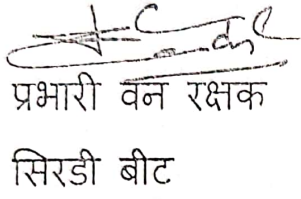 प्रभारी वन रक्षक
सिरडी बीट